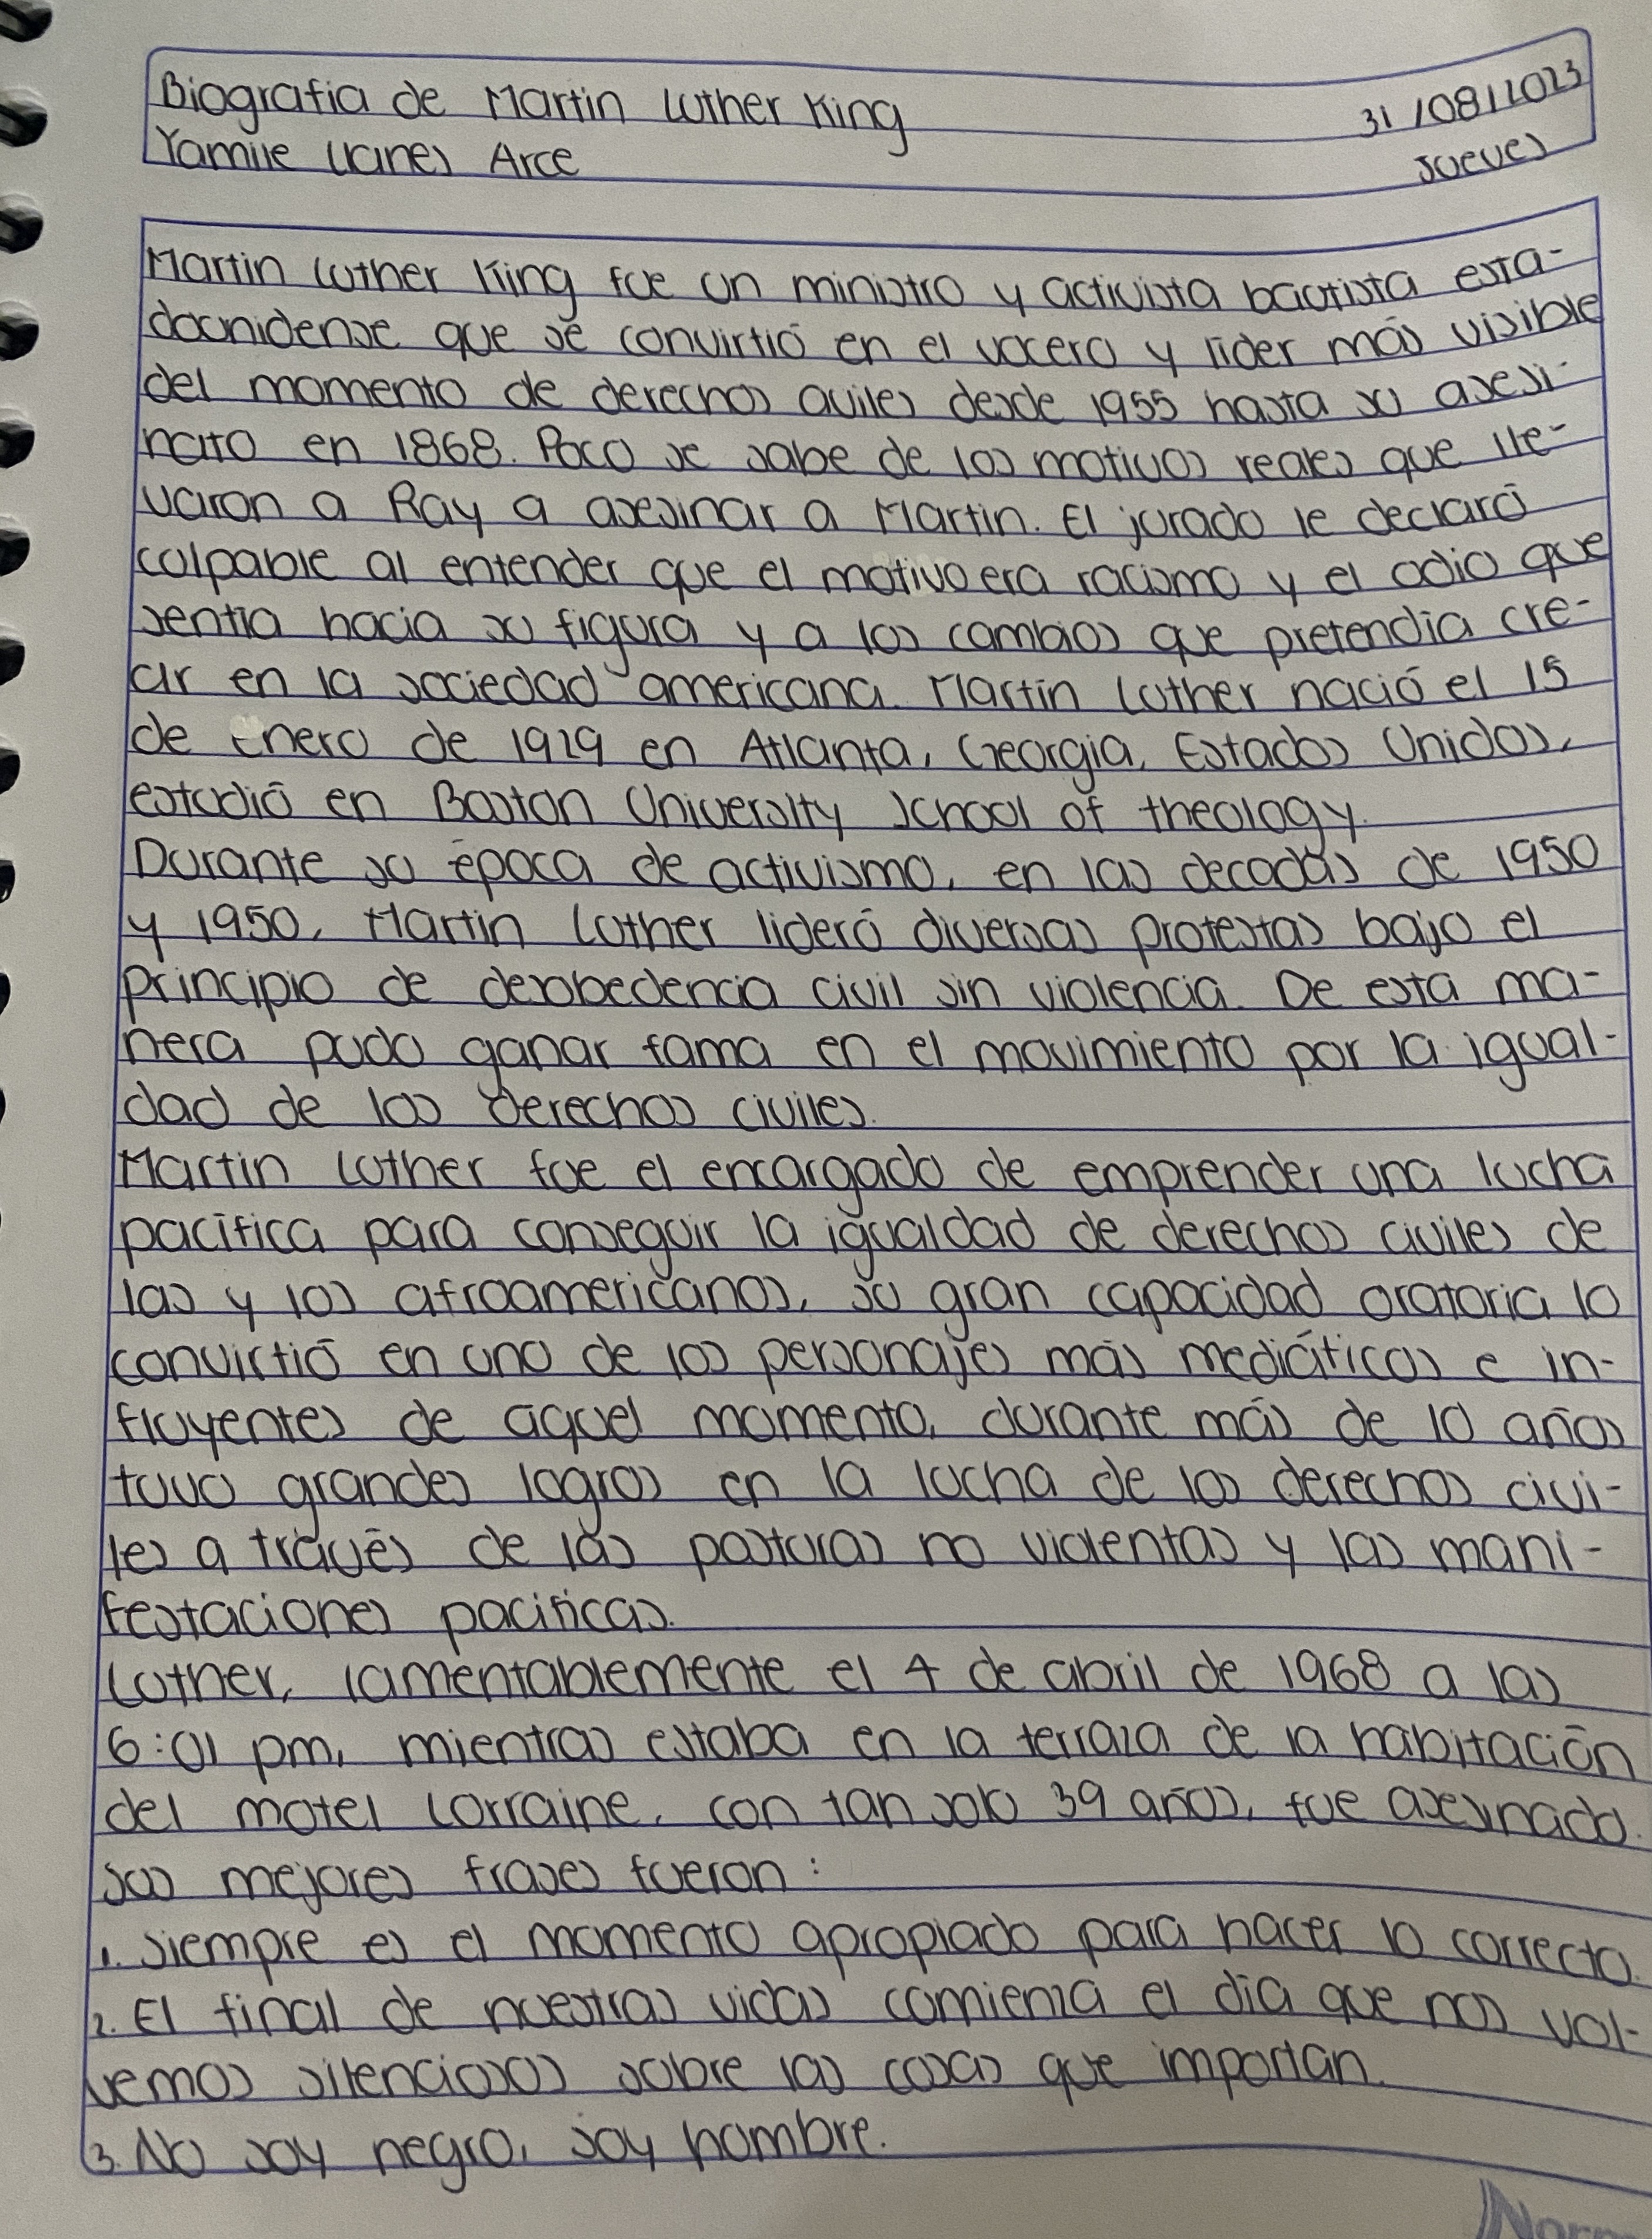 Biografia de Martin Luther King
31/08/2023
Yamile Llanes Arce
Jueves
Martin Luther King fue un ministro y activista bautista esta-
dounidense que se convirtió en el vocero y lider más visible
del momento de derechos civiles desde 1955 hasta su asesi-
nato en 1868. Poco se sabe de los motivos reales que lle-
varon a Ray a asesinar a Martin. El jurado le declaró
culpable al entender que el motivo era racismo y el odio que
sentia hacia su figura y a los cambios que pretendia cre-
ar en la sociedad americana. Martin Luther nació el 15
de Enero de 1929 en Atlanta, Georgia, Estados Unidos,
estudió en Boston University School of theology.
Durante su época de activismo, en las decadas de 1950
y 1950, Martin Luther lideró diversas protestas bajo el
principio de desobedencia civil sin violencia. De esta ma-
nera pudo ganar fama en el movimiento por la igual-
dad de los derechos civiles.
Martin Luther fue el encargado de emprender una lucha
pacífica para conseguir la igualdad de derechos civiles de
las y los afroamericanos, su gran capacidad oratoria lo
convirtió en uno de los personajes más mediáticos e in-
fluyentes de aquel momento, durante más de 10 años
tuvo grandes logros en la lucha de los derechos civi-
les a través de las posturas no violentas y las mani-
festaciones pacificas.
Luther, lamentablemente el 4 de abril de 1968 a las
6:01 pm, mientras estaba en la terraza de la habitación
del motel Lorraine, con tan solo 39 años, fue asesinado.
Sus mejores frases fueron:
1. Siempre es el momento apropiado para hacer lo correcto.
2. El final de nuestras vidas comienza el día que nos vol-
vemos silenciosos sobre las cosas que importan.
3. No soy negro, soy hombre.